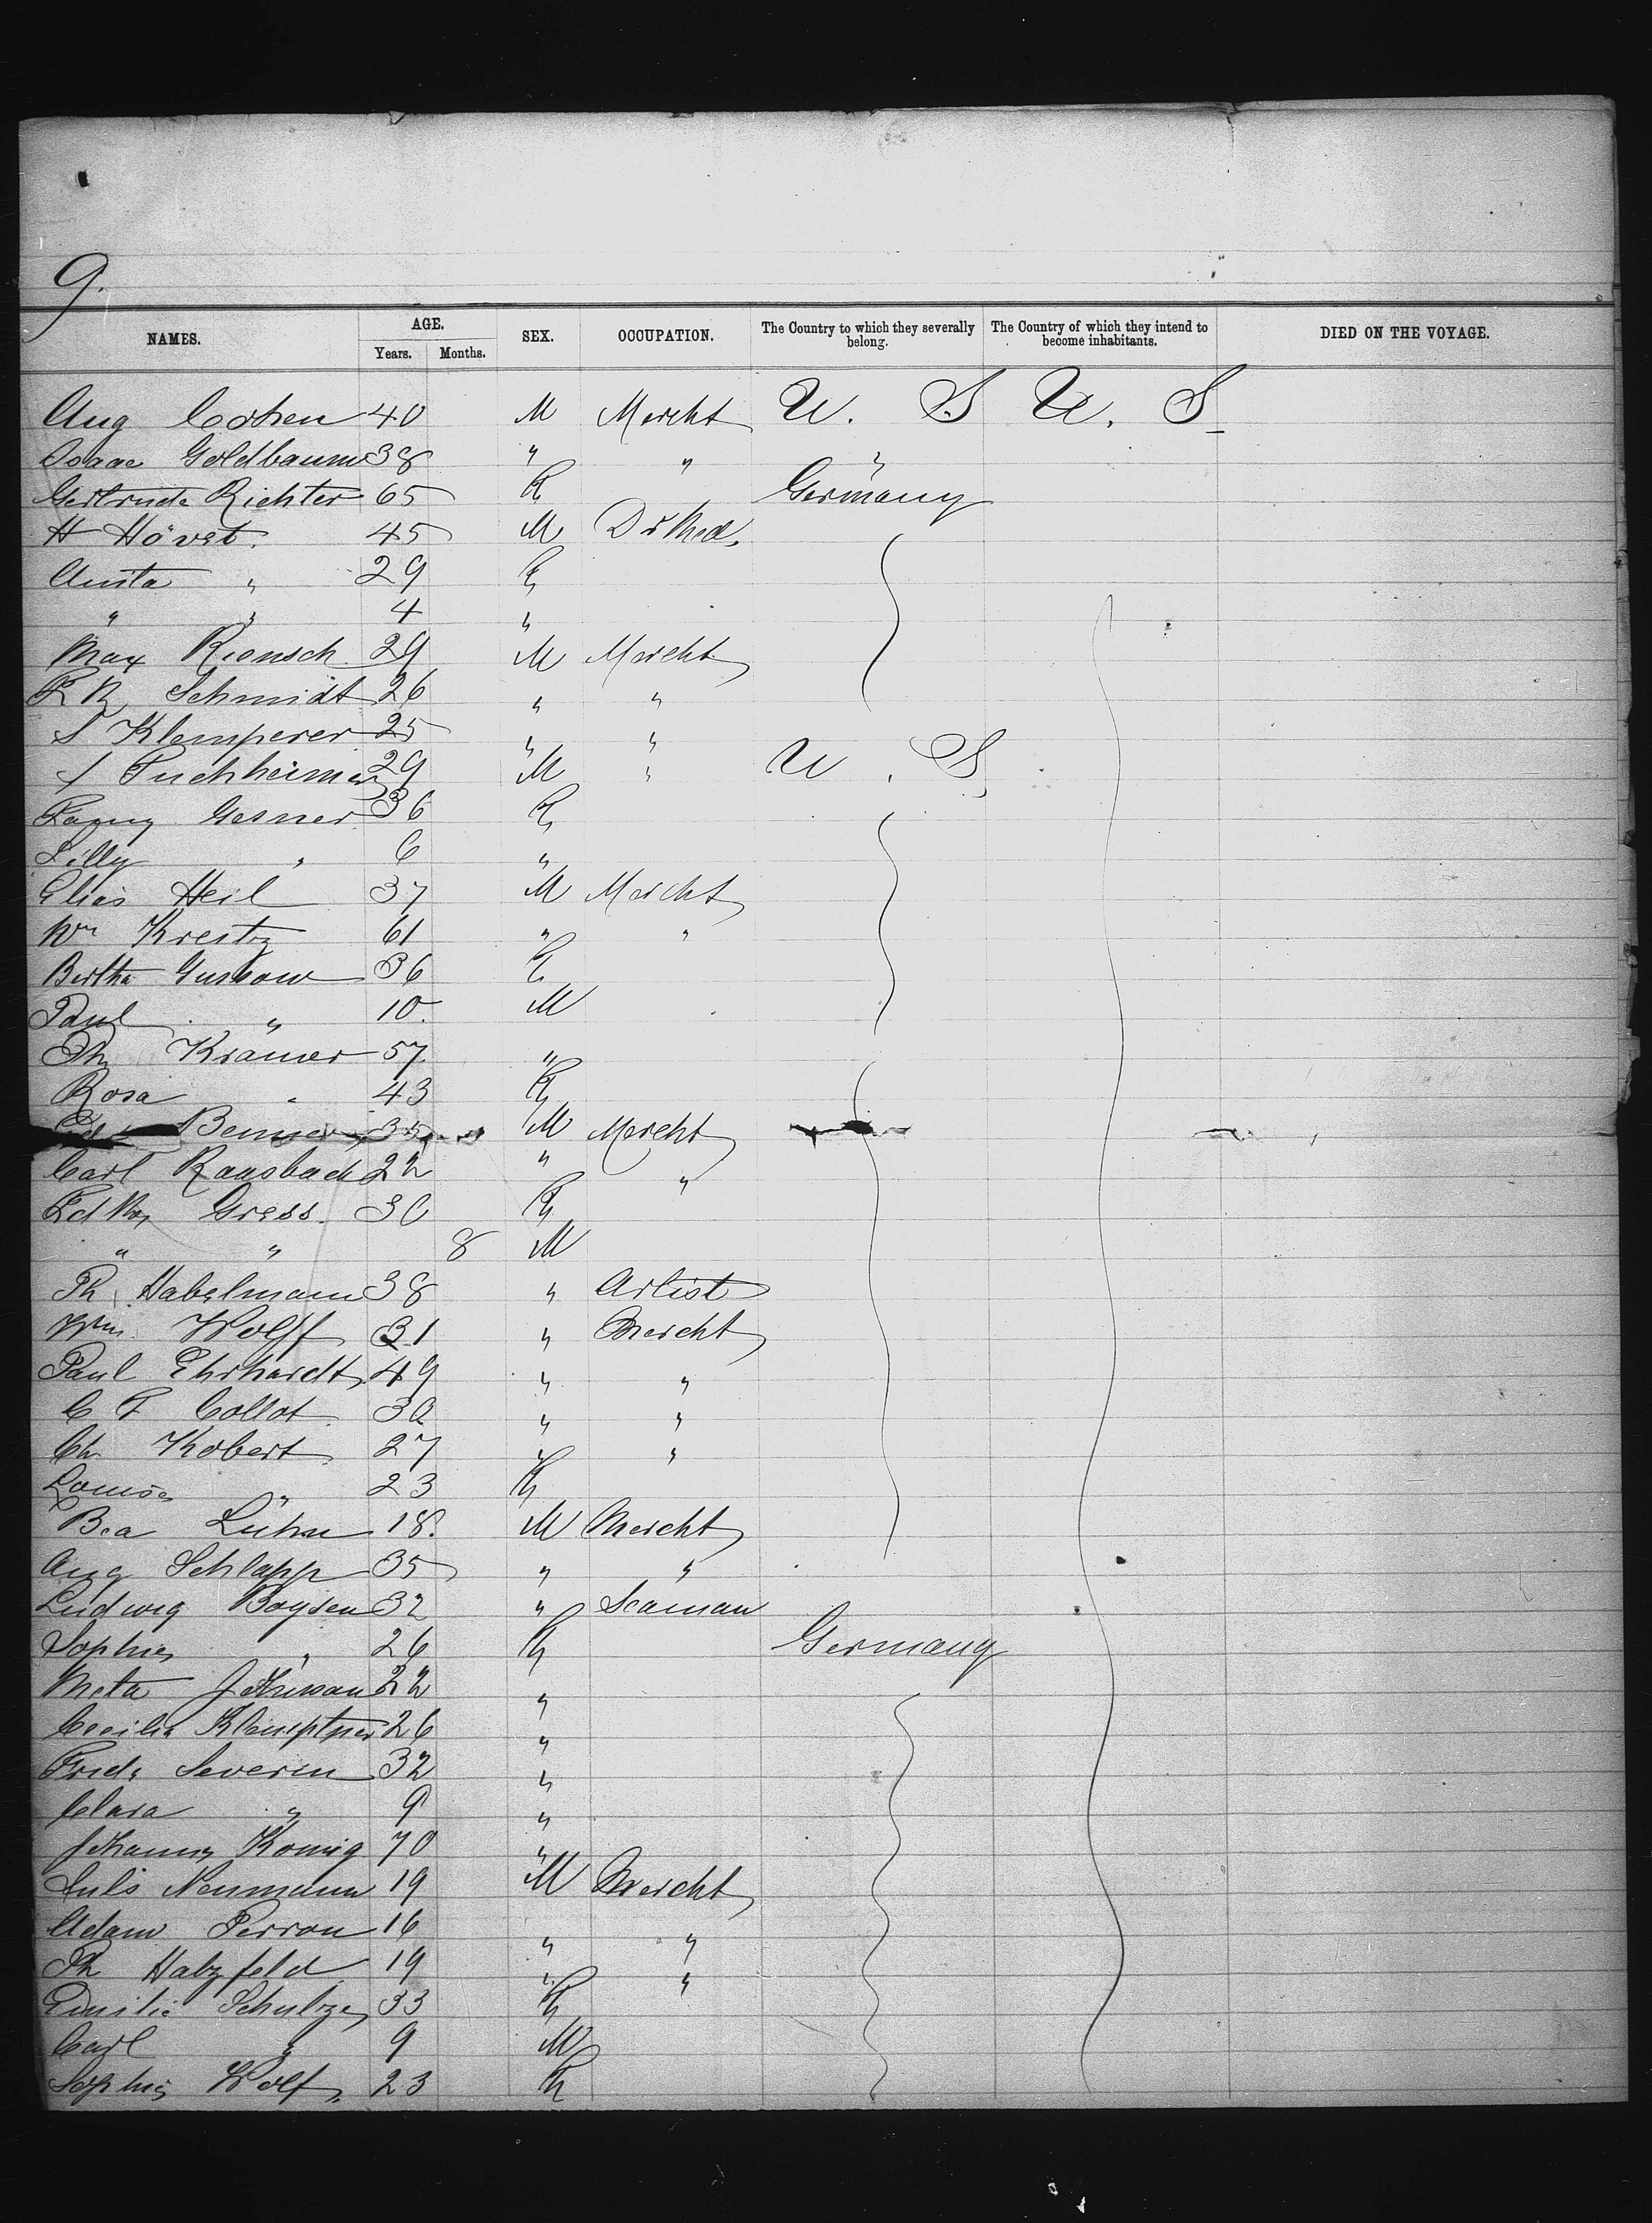 9.
NAMES. AGE. Years. Months. SEX. OCCUPATION. The Country to which they severally belong. The Country of which they intend to become inhabitants. DIED ON THE VOYAGE.
Aug Cohen 40 M Mercht U. S U. S
Isaac Goldbaum 38 " " "
Gertrude Richter 65 F Germany
H Hövet. 45 M Dr Med.
Anita " 29 F
" " 4 "
Max Riensch 29 M Mercht
F R Schmidt 26 " "
S Klemperer 25 " "
29 M " U. S
Fanny Gesner 36 F
Lilly " 6 "
Elias Heil 37 M Mercht
Wm 61 " "
Bertha Gussow 36 F
Paul " 10. M
Ph Kramer 57 "
Rosa " 43 F
35 M Mercht
Carl Ransbach 22 " "
Gress. 30 F
" " 8 M
Ph. Habelmann 38 " Artist
Wm. Wolff 31 " Mercht
Paul Ehrhardt 49 " "
C F Collot 30 " "
Ch. Kobert 27 " "
Louise " 23 F
Lühn 18. M Mercht
Aug Schlapp 35 " "
Ludwig Boysen 32 " Seaman
Sophie " 26 F Germany
Meta 22 "
Cecilia 26 "
Fride Severin 32 "
Clara " 9 "
Johanna Konig 70 "
Juls Neumann 19 M Mercht
Adam Perron 16 " "
Ph Hatzfeld 19 " "
Emilie Schultze 33 F
Carl " 9 M
Sophie Wolf. 23 F